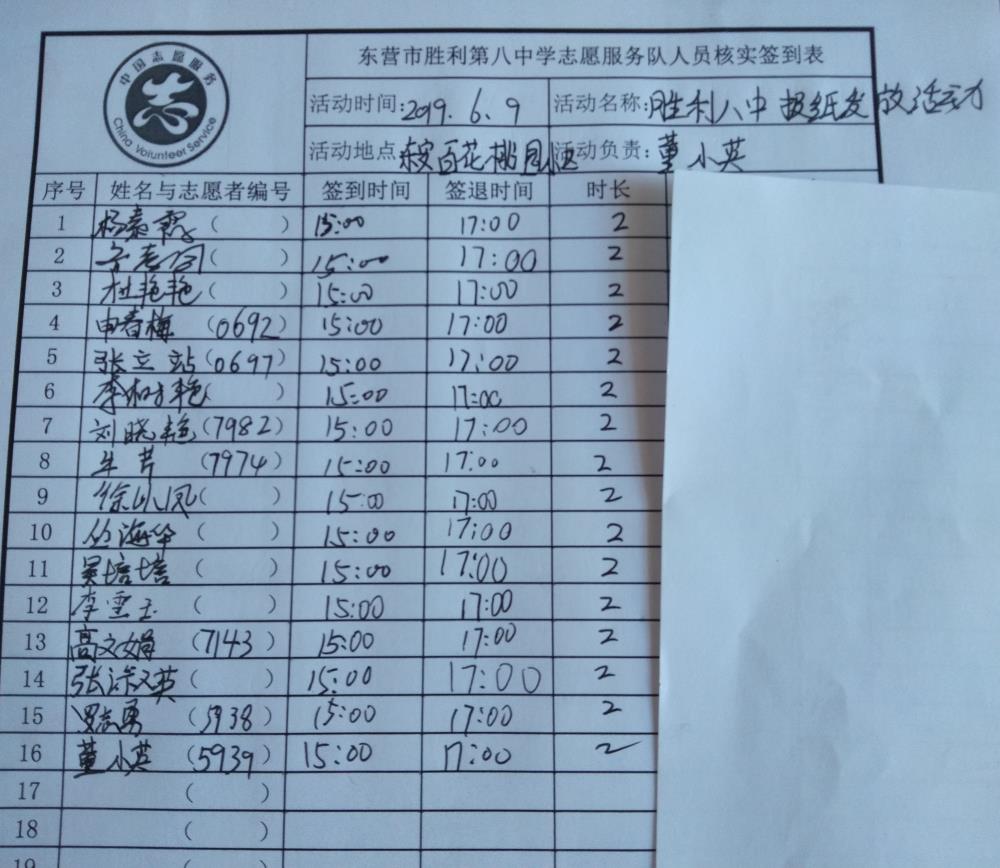 中国志愿服务
志
China Volunteer Service
东营市胜利第八中学志愿服务队人员核实签到表
活动时间:2019.6.9 活动名称:胜利八中报纸发放活动
活动地点 百花桃园 活动负责:董小英
序号 姓名与志愿者编号 签到时间 签退时间 时长
1 杨 ( ) 15:00 17:00 2
2 ( ) 15:00 17:00 2
3 杜艳艳( ) 15:00 17:00 2
4 申春梅(0692) 15:00 17:00 2
5 张立站(0697) 15:00 17:00 2
6 李 艳( ) 15:00 17:00 2
7 刘晓艳(7982) 15:00 17:00 2
8 牛芹(7974) 15:00 17:00 2
9 徐小凤( ) 15:00 17:00 2
10 丛海华( ) 15:00 17:00 2
11 吴培培( ) 15:00 17:00 2
12 李雪玉( ) 15:00 17:00 2
13 高文娟(7143) 15:00 17:00 2
14 张 英( ) 15:00 17:00 2
15 罗志勇(5938) 15:00 17:00 2
16 董小英(5939) 15:00 17:00 2
17 ( )
18 ( )
19